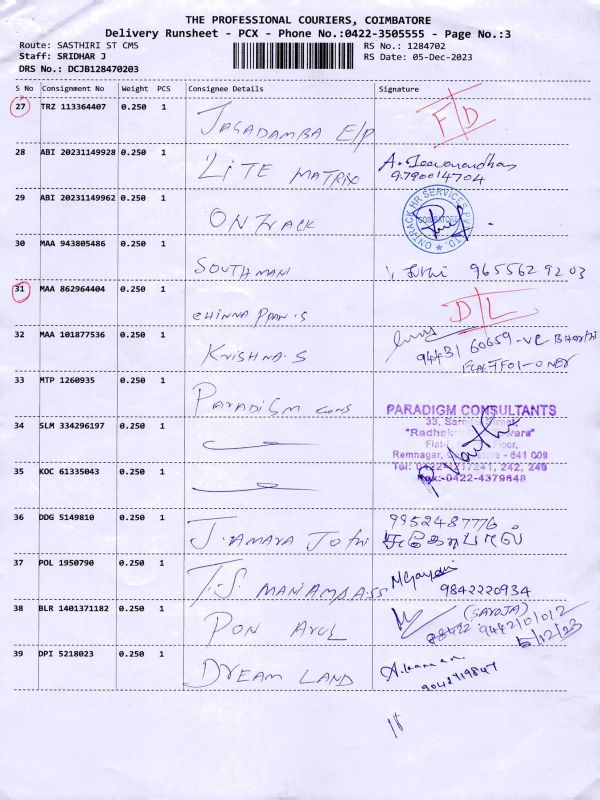 THE PROFESSIONAL COURIERS, COIMBATORE
Delivery Runsheet - PCX - Phone No.:0422-3505555 - Page No.:3
Route: SASTHIRI ST CMS
RS No.: 1284702
Staff: SRIDHAR J
RS Date: 05-Dec-2023
DRS No.: DCJB128470203
S No Consignment No Weight PCS Consignee Details Signature
27 TRZ 113364407 0.250 1 JAGADAMBA E/P F/D
28 ABI 20231149928 0.250 1 LITE MATRIX A. Jeevanandham
9790014704
29 ABI 20231149962 0.250 1 ONTRACK ONTRACK HR SERVICES PVT. LTD. COIMBATORE
30 MAA 943805486 0.250 1 SOUTHMANI 9655629203
31 MAA 862964404 0.250 1 CHINNAPPAN.S D/L
32 MAA 101877536 0.250 1 KRISHNA.S 94431 60659-VC BHARTHI
FLAT F01-ONER
33 MTP 1260935 0.250 1 PARADIGM CONS PARADIGM CONSULTANTS
34 SLM 334296197 0.250 1 33,
Floor,
Remnagar, - 641 009
35 KOC 61335043 0.250 1 242, 243
0422-4379648
36 DDG 5149810 0.250 1 J. AMARA JOTHI 9952487776
37 POL 1950790 0.250 1 T.S. MANIAMPASS MGayathri
9842220934
38 BLR 1401371182 0.250 1 PON ARUL (SAROJA)
9442101012
5/12/23
39 DPI 5218023 0.250 1 DREAM LAND A.Kannan
9042419847